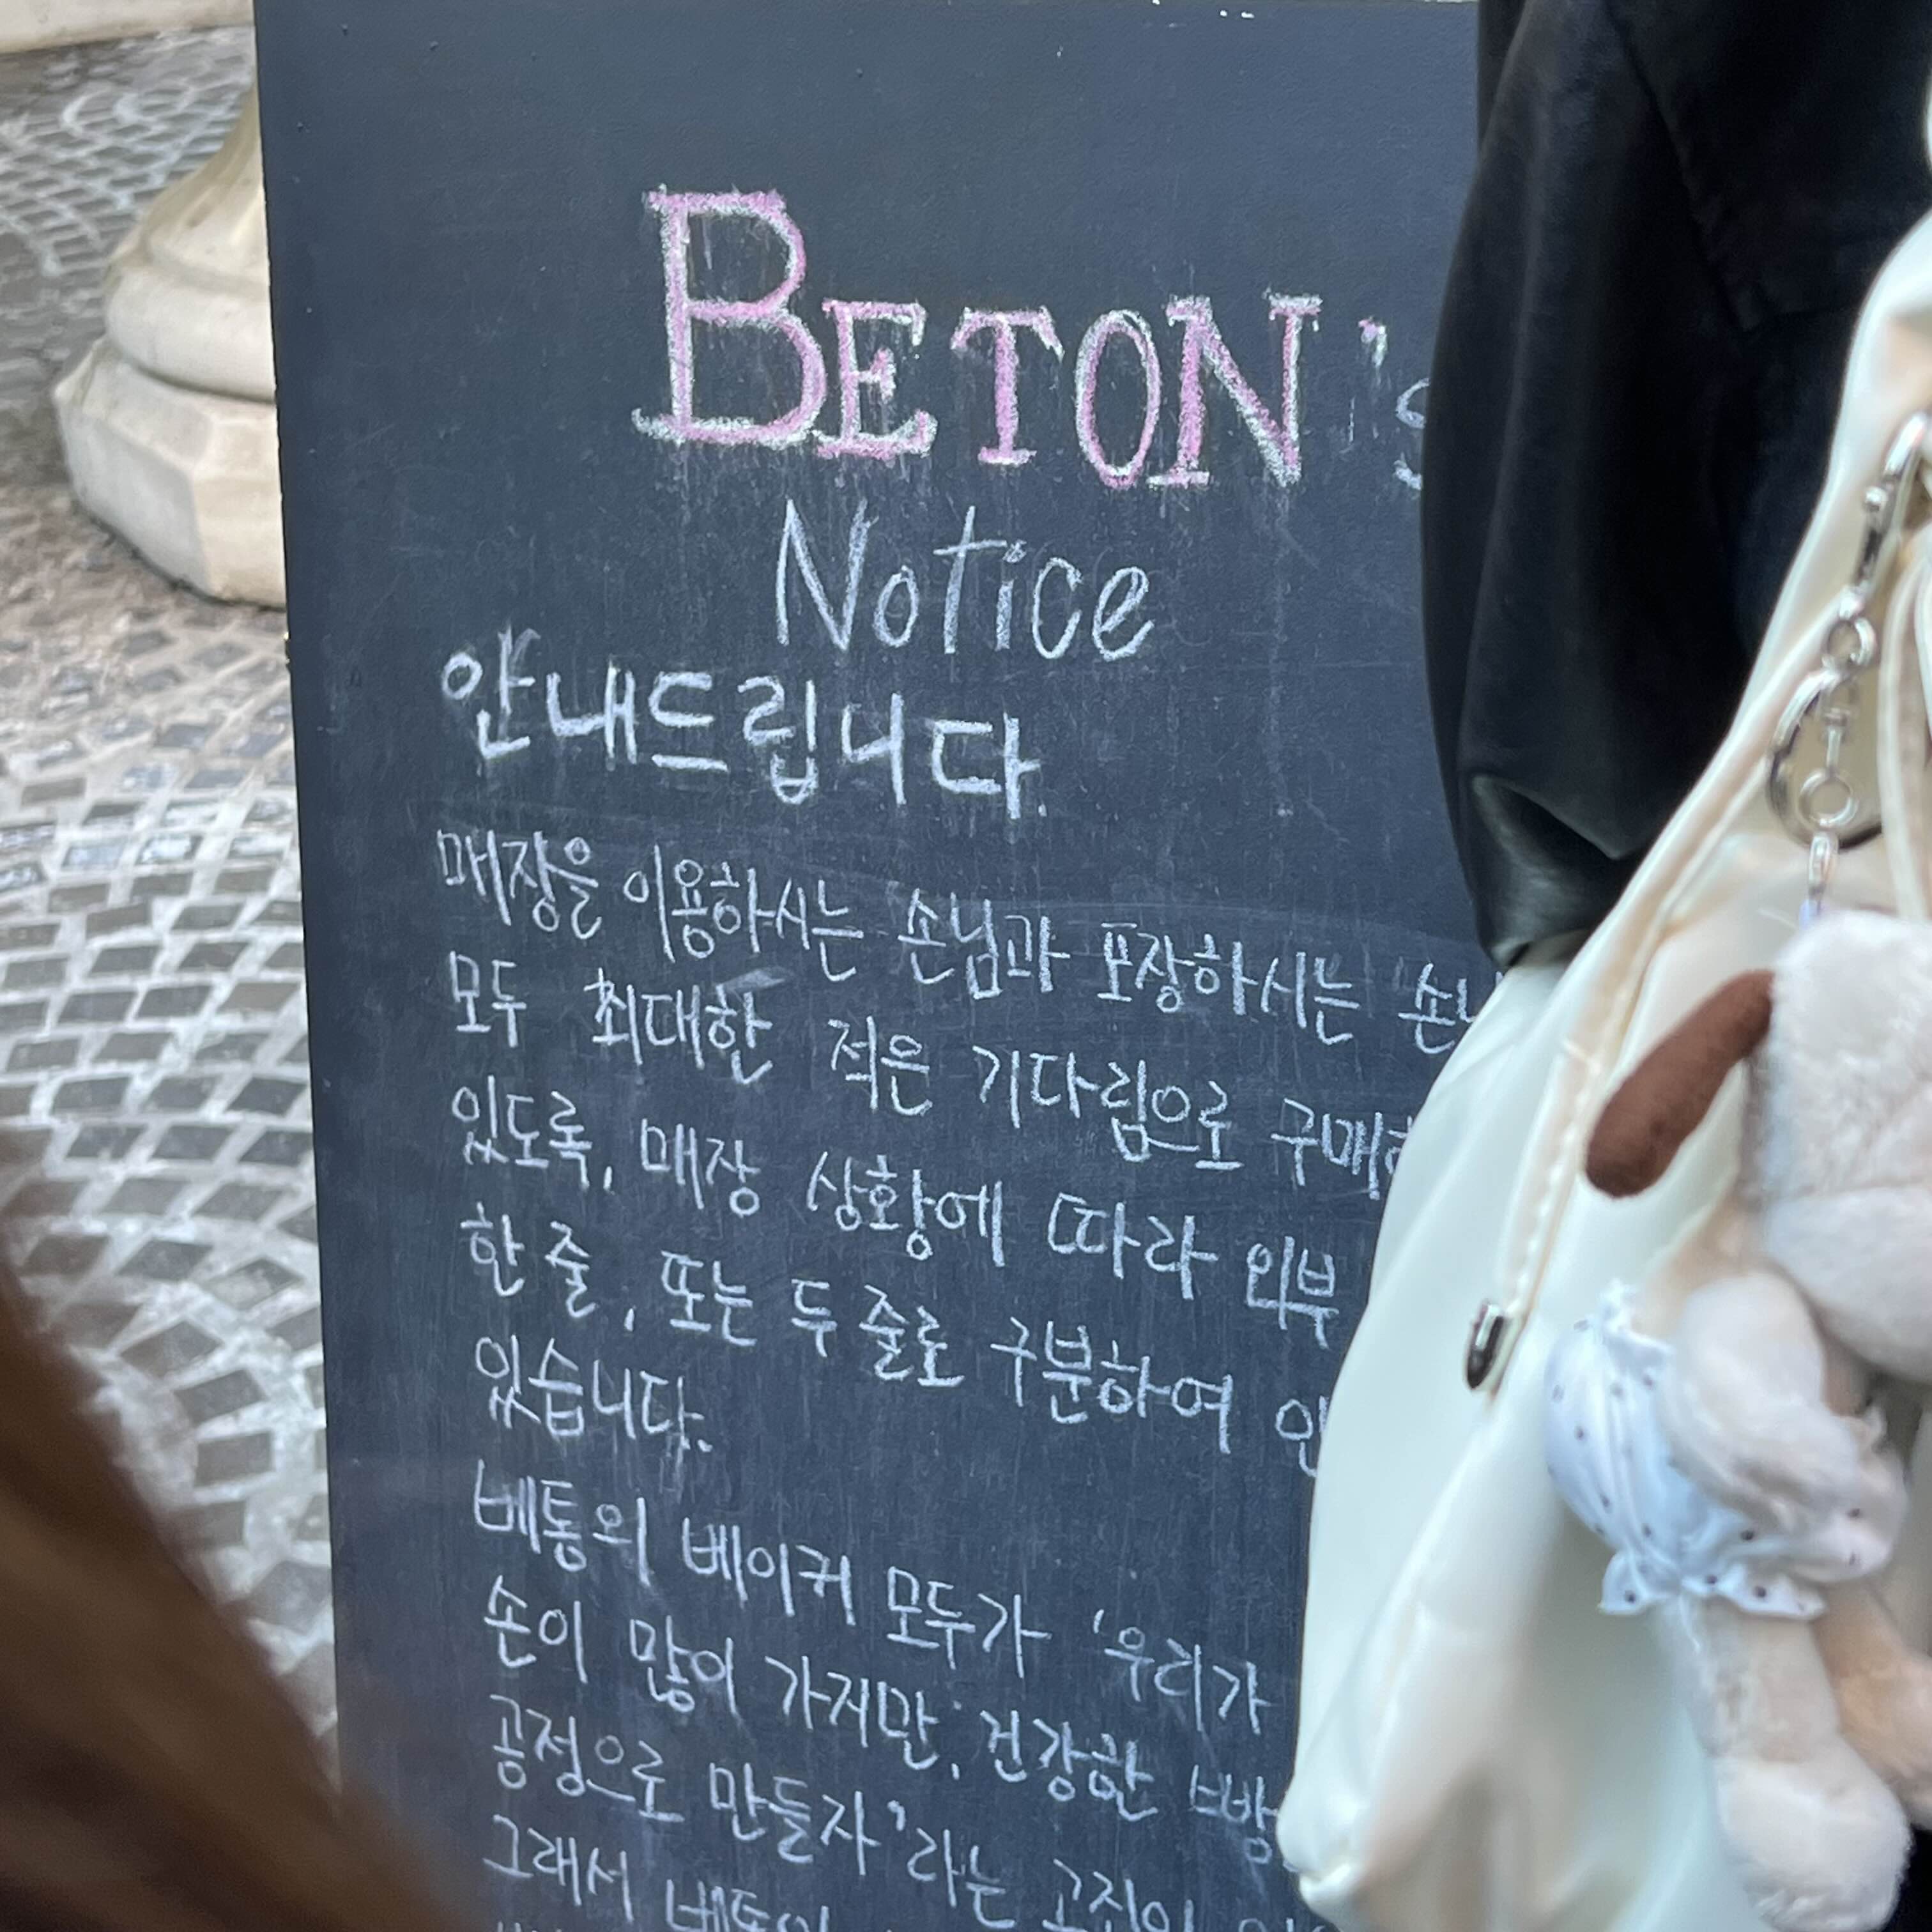 BETON's
Notice
안내드립니다.
매장을 이용하시는 손님과 포장하시는
모두 최대한 적은 기다림으로
있도록, 매장 상황에 따라 외부
한 줄, 또는 두 줄로 구분하여
있습니다.
베통의 베이커 모두가 '우리가
손이 많이 가지만, 건강한 빵
공정으로 만들자'라는 고집이
그래서